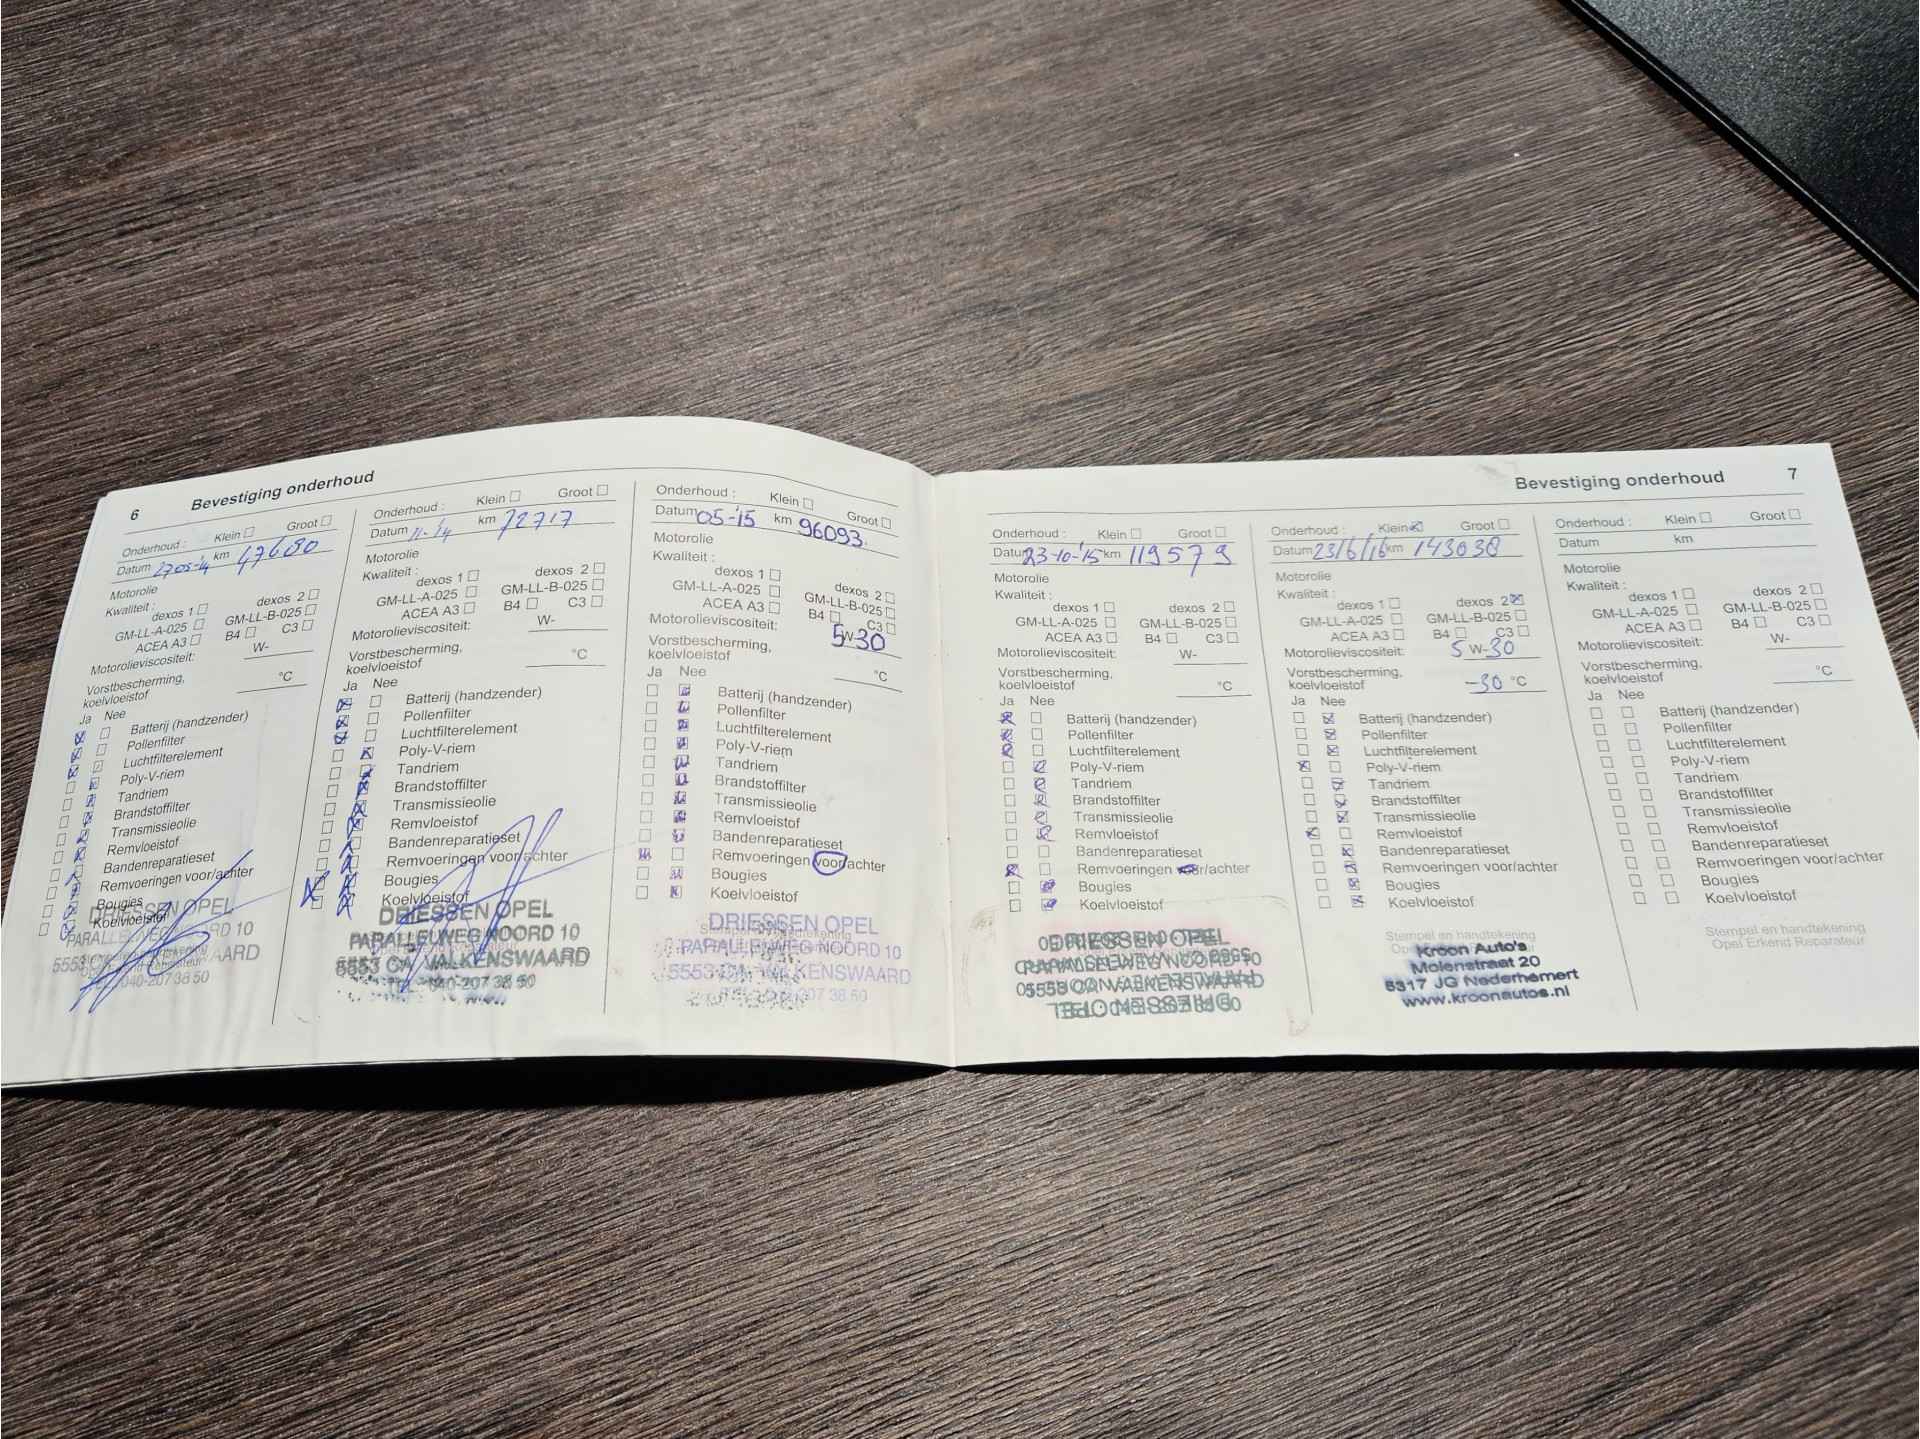 6 Bevestiging onderhoud
Onderhoud : Klein Groot
Datum 27 05-'14 km 47680
Motorolie
Kwaliteit :
dexos 1 dexos 2
GM-LL-A-025 GM-LL-B-025
ACEA A3 B4 C3
Motorolieviscositeit: W-
Vorstbescherming,
koelvloeistof °C
Ja Nee
Batterij (handzender)
Pollenfilter
Luchtfilterelement
Poly-V-riem
Tandriem
Brandstoffilter
Transmissieolie
Remvloeistof
Bandenreparatieset
Remvoeringen voor/achter
Bougies
Koelvloeistof
DRIESSEN OPEL
PARALLELWEG NOORD 10
5553 CA VALKENSWAARD
040-207 38 50
Onderhoud : Klein Groot
Datum 11-'14 km 72717
Motorolie
Kwaliteit :
dexos 1 dexos 2
GM-LL-A-025 GM-LL-B-025
ACEA A3 B4 C3
Motorolieviscositeit: W-
Vorstbescherming,
koelvloeistof °C
Ja Nee
Batterij (handzender)
Pollenfilter
Luchtfilterelement
Poly-V-riem
Tandriem
Brandstoffilter
Transmissieolie
Remvloeistof
Bandenreparatieset
Remvoeringen voor/achter
Bougies
Koelvloeistof
DRIESSEN OPEL
PARALLELWEG NOORD 10
5553 CA VALKENSWAARD
TEL. 040-207 38 50
Onderhoud : Klein Groot
Datum 05-'15 km 96093
Motorolie
Kwaliteit :
dexos 1 dexos 2
GM-LL-A-025 GM-LL-B-025
ACEA A3 B4 C3
Motorolieviscositeit: 5W-30
Vorstbescherming,
koelvloeistof °C
Ja Nee
Batterij (handzender)
Pollenfilter
Luchtfilterelement
Poly-V-riem
Tandriem
Brandstoffilter
Transmissieolie
Remvloeistof
Bandenreparatieset
Remvoeringen voor/achter
Bougies
Koelvloeistof
DRIESSEN OPEL
PARALLELWEG NOORD 10
5553 CA VALKENSWAARD
207 38 50
Bevestiging onderhoud 7
Onderhoud : Klein Groot
Datum 23-10-'15 km 119579
Motorolie
Kwaliteit :
dexos 1 dexos 2
GM-LL-A-025 GM-LL-B-025
ACEA A3 B4 C3
Motorolieviscositeit: W-
Vorstbescherming,
koelvloeistof °C
Ja Nee
Batterij (handzender)
Pollenfilter
Luchtfilterelement
Poly-V-riem
Tandriem
Brandstoffilter
Transmissieolie
Remvloeistof
Bandenreparatieset
Remvoeringen voor/achter
Bougies
Koelvloeistof
DRIESSEN OPEL
PARALLELWEG NOORD 10
5553 CA VALKENSWAARD
Onderhoud : Klein Groot
Datum 23/6/16 km 143038
Motorolie
Kwaliteit :
dexos 1 dexos 2
GM-LL-A-025 GM-LL-B-025
ACEA A3 B4 C3
Motorolieviscositeit: 5 W-30
Vorstbescherming,
koelvloeistof -30 °C
Ja Nee
Batterij (handzender)
Pollenfilter
Luchtfilterelement
Poly-V-riem
Tandriem
Brandstoffilter
Transmissieolie
Remvloeistof
Bandenreparatieset
Remvoeringen voor/achter
Bougies
Koelvloeistof
Stempel en handtekening
Kroon Auto's
Molenstraat 20
5317 JG Nederhemert
www.kroonautos.nl
Onderhoud : Klein Groot
Datum km
Motorolie
Kwaliteit :
dexos 1 dexos 2
GM-LL-A-025 GM-LL-B-025
ACEA A3 B4 C3
Motorolieviscositeit: W-
Vorstbescherming,
koelvloeistof °C
Ja Nee
Batterij (handzender)
Pollenfilter
Luchtfilterelement
Poly-V-riem
Tandriem
Brandstoffilter
Transmissieolie
Remvloeistof
Bandenreparatieset
Remvoeringen voor/achter
Bougies
Koelvloeistof
Stempel en handtekening
Opel Erkend Reparateur